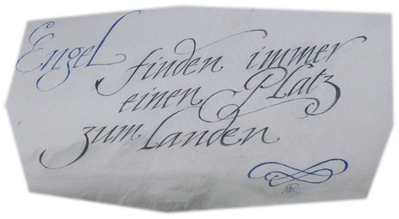 Engel finden immer
einen Platz
zum landen